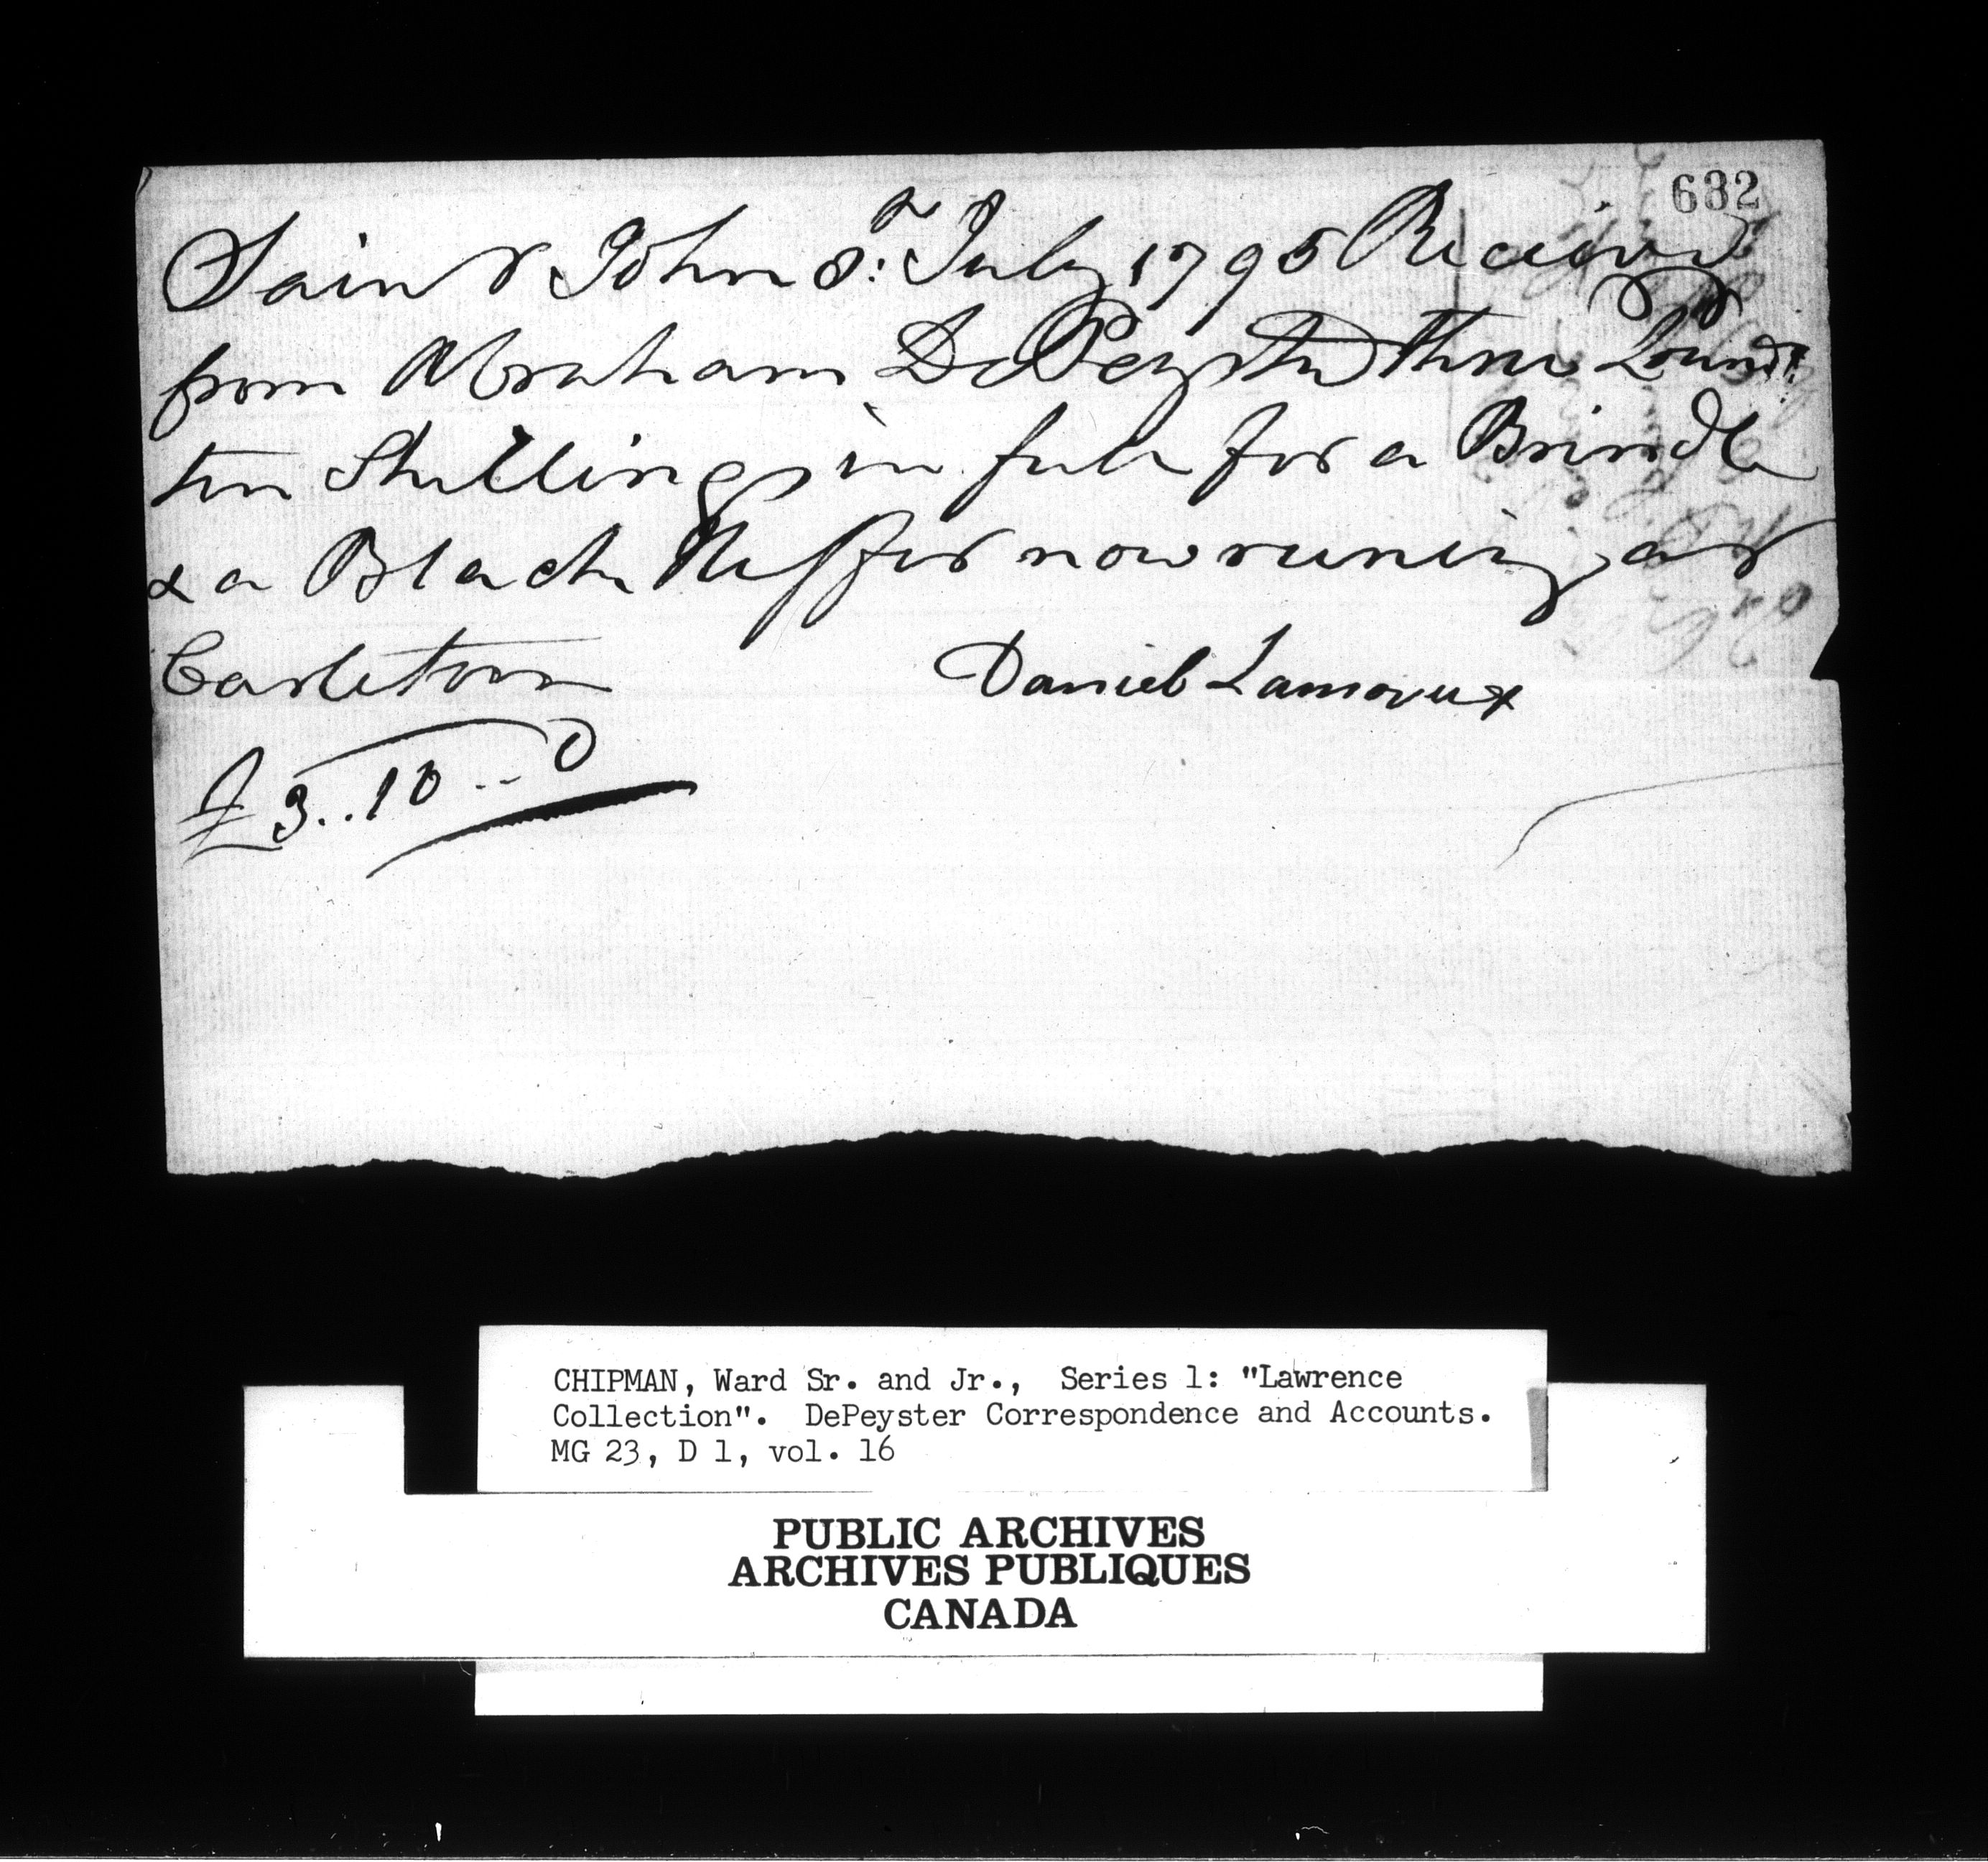 632
Saint John 8th July 1795 Received
from Abraham DePeyster Three Pounds
ten Shillings in full for a Brindle
& a Black Heffer now runing at
Carleton
Daniel Lamoreux
£3..10..0
CHIPMAN, Ward Sr. and Jr., Series 1: "Lawrence
Collection". DePeyster Correspondence and Accounts.
MG 23, D 1, vol. 16
PUBLIC ARCHIVES
ARCHIVES PUBLIQUES
CANADA